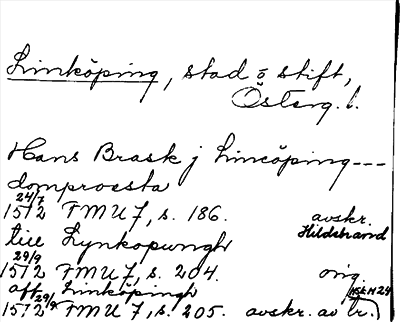 Linköping, stad o stift,
Österg. l.
Hans Brask j Lincöping---
domprossta
24/7
1512 FMU 7, s. 186. avskr.
Hildebrand
till Lynkopungh
29/9
1512 FMU 7, s. 204. orig.
aff Linköpingh HSH 24
29/9
1512 FMU 7, s. 205. avskr. av tr.